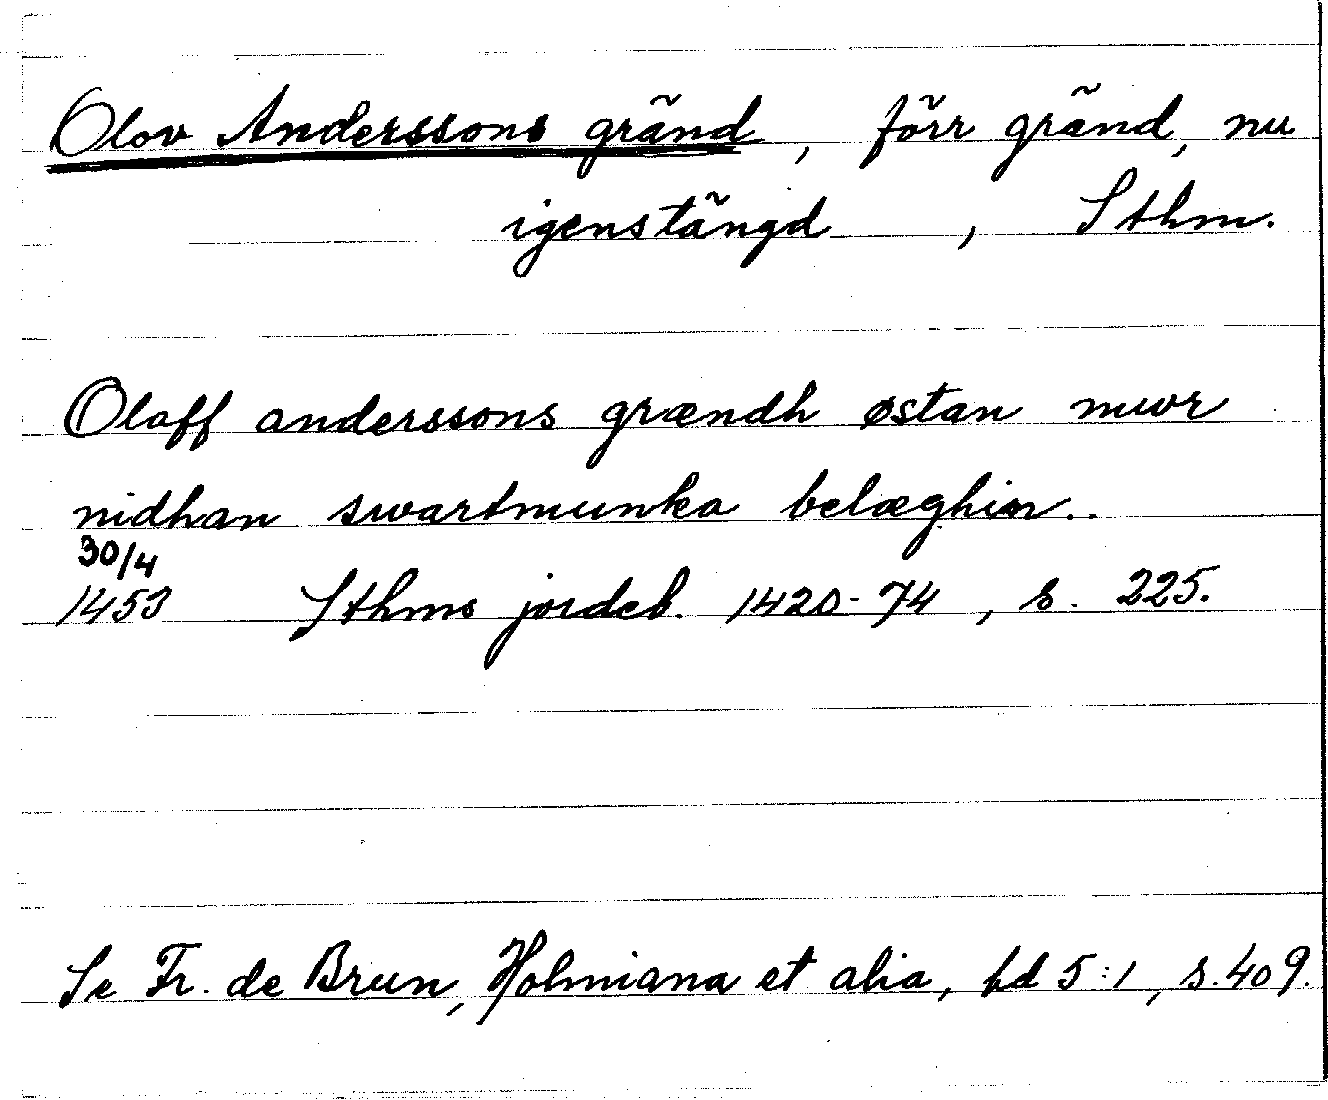 Olov Anderssons gränd, förr gränd, nu
igenstängd, Sthm.
Olaff anderssons grændh østan mwr
nidhan swartmunka belæghin..
30/4
1453 Sthms jordeb. 1420-74, s. 225.
Se Fr. de Brun, Holmiana et alia, bd 5:1, s. 409.